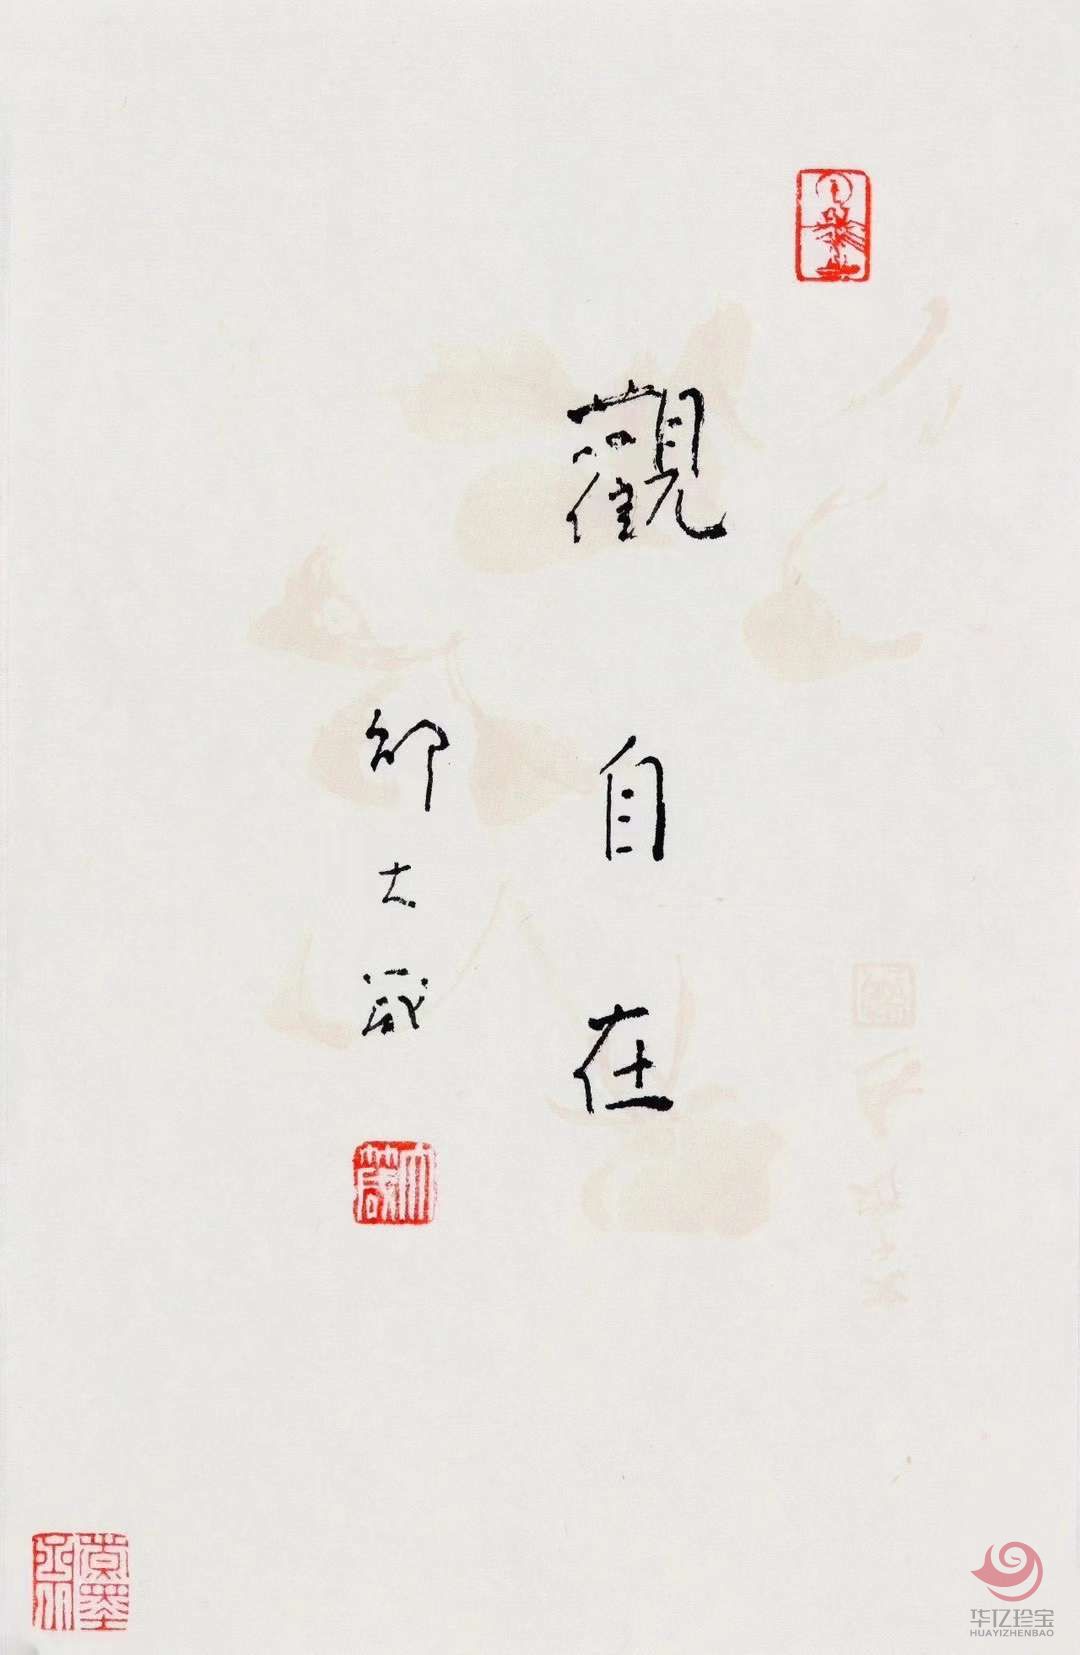 觀自在
邵大箴
大箴
华亿珍宝
HUAYIZHENBAO